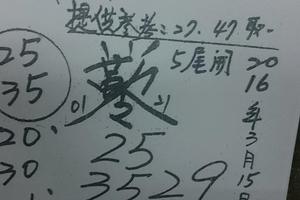 提供参考:27.47取一
25
35
5尾開
2016年3月15日
01
21
20
25
30
3529